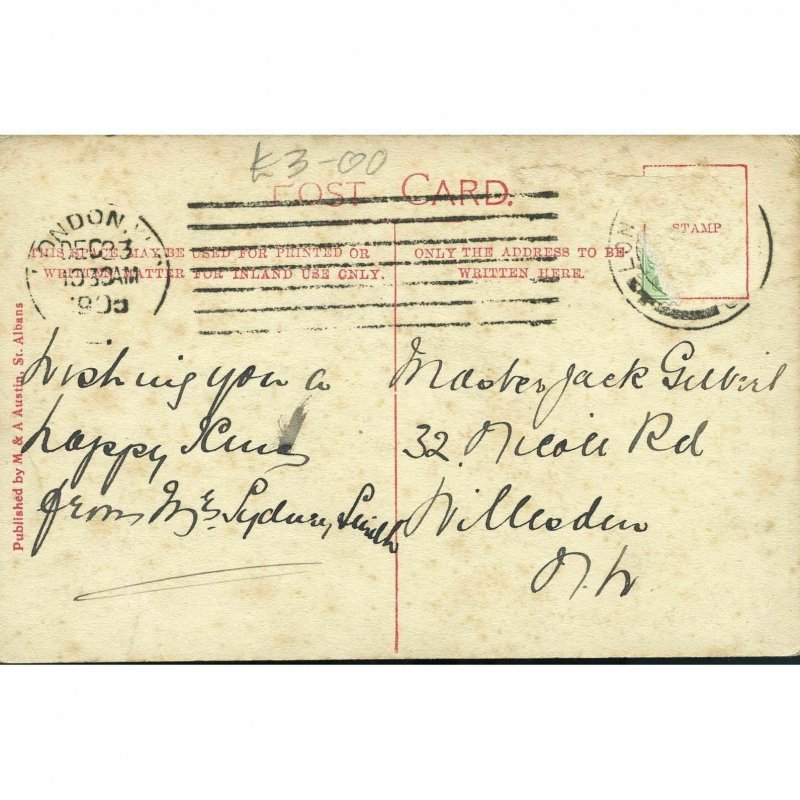 £3-00
POST CARD.
LONDON.W.
DEC 23
10 30 AM
THIS SPACE MAY BE USED FOR PRINTED OR
WRITTEN MATTER FOR INLAND USE ONLY.
ONLY THE ADDRESS TO BE
WRITTEN HERE.
STAMP
LON
Published by M. & A Austin, St. Albans
Wishing you a
happy Xmas
from Mrs Sydney Smith
Master Jack Gilbert
32. Nicoll Rd
Willesden
N.W